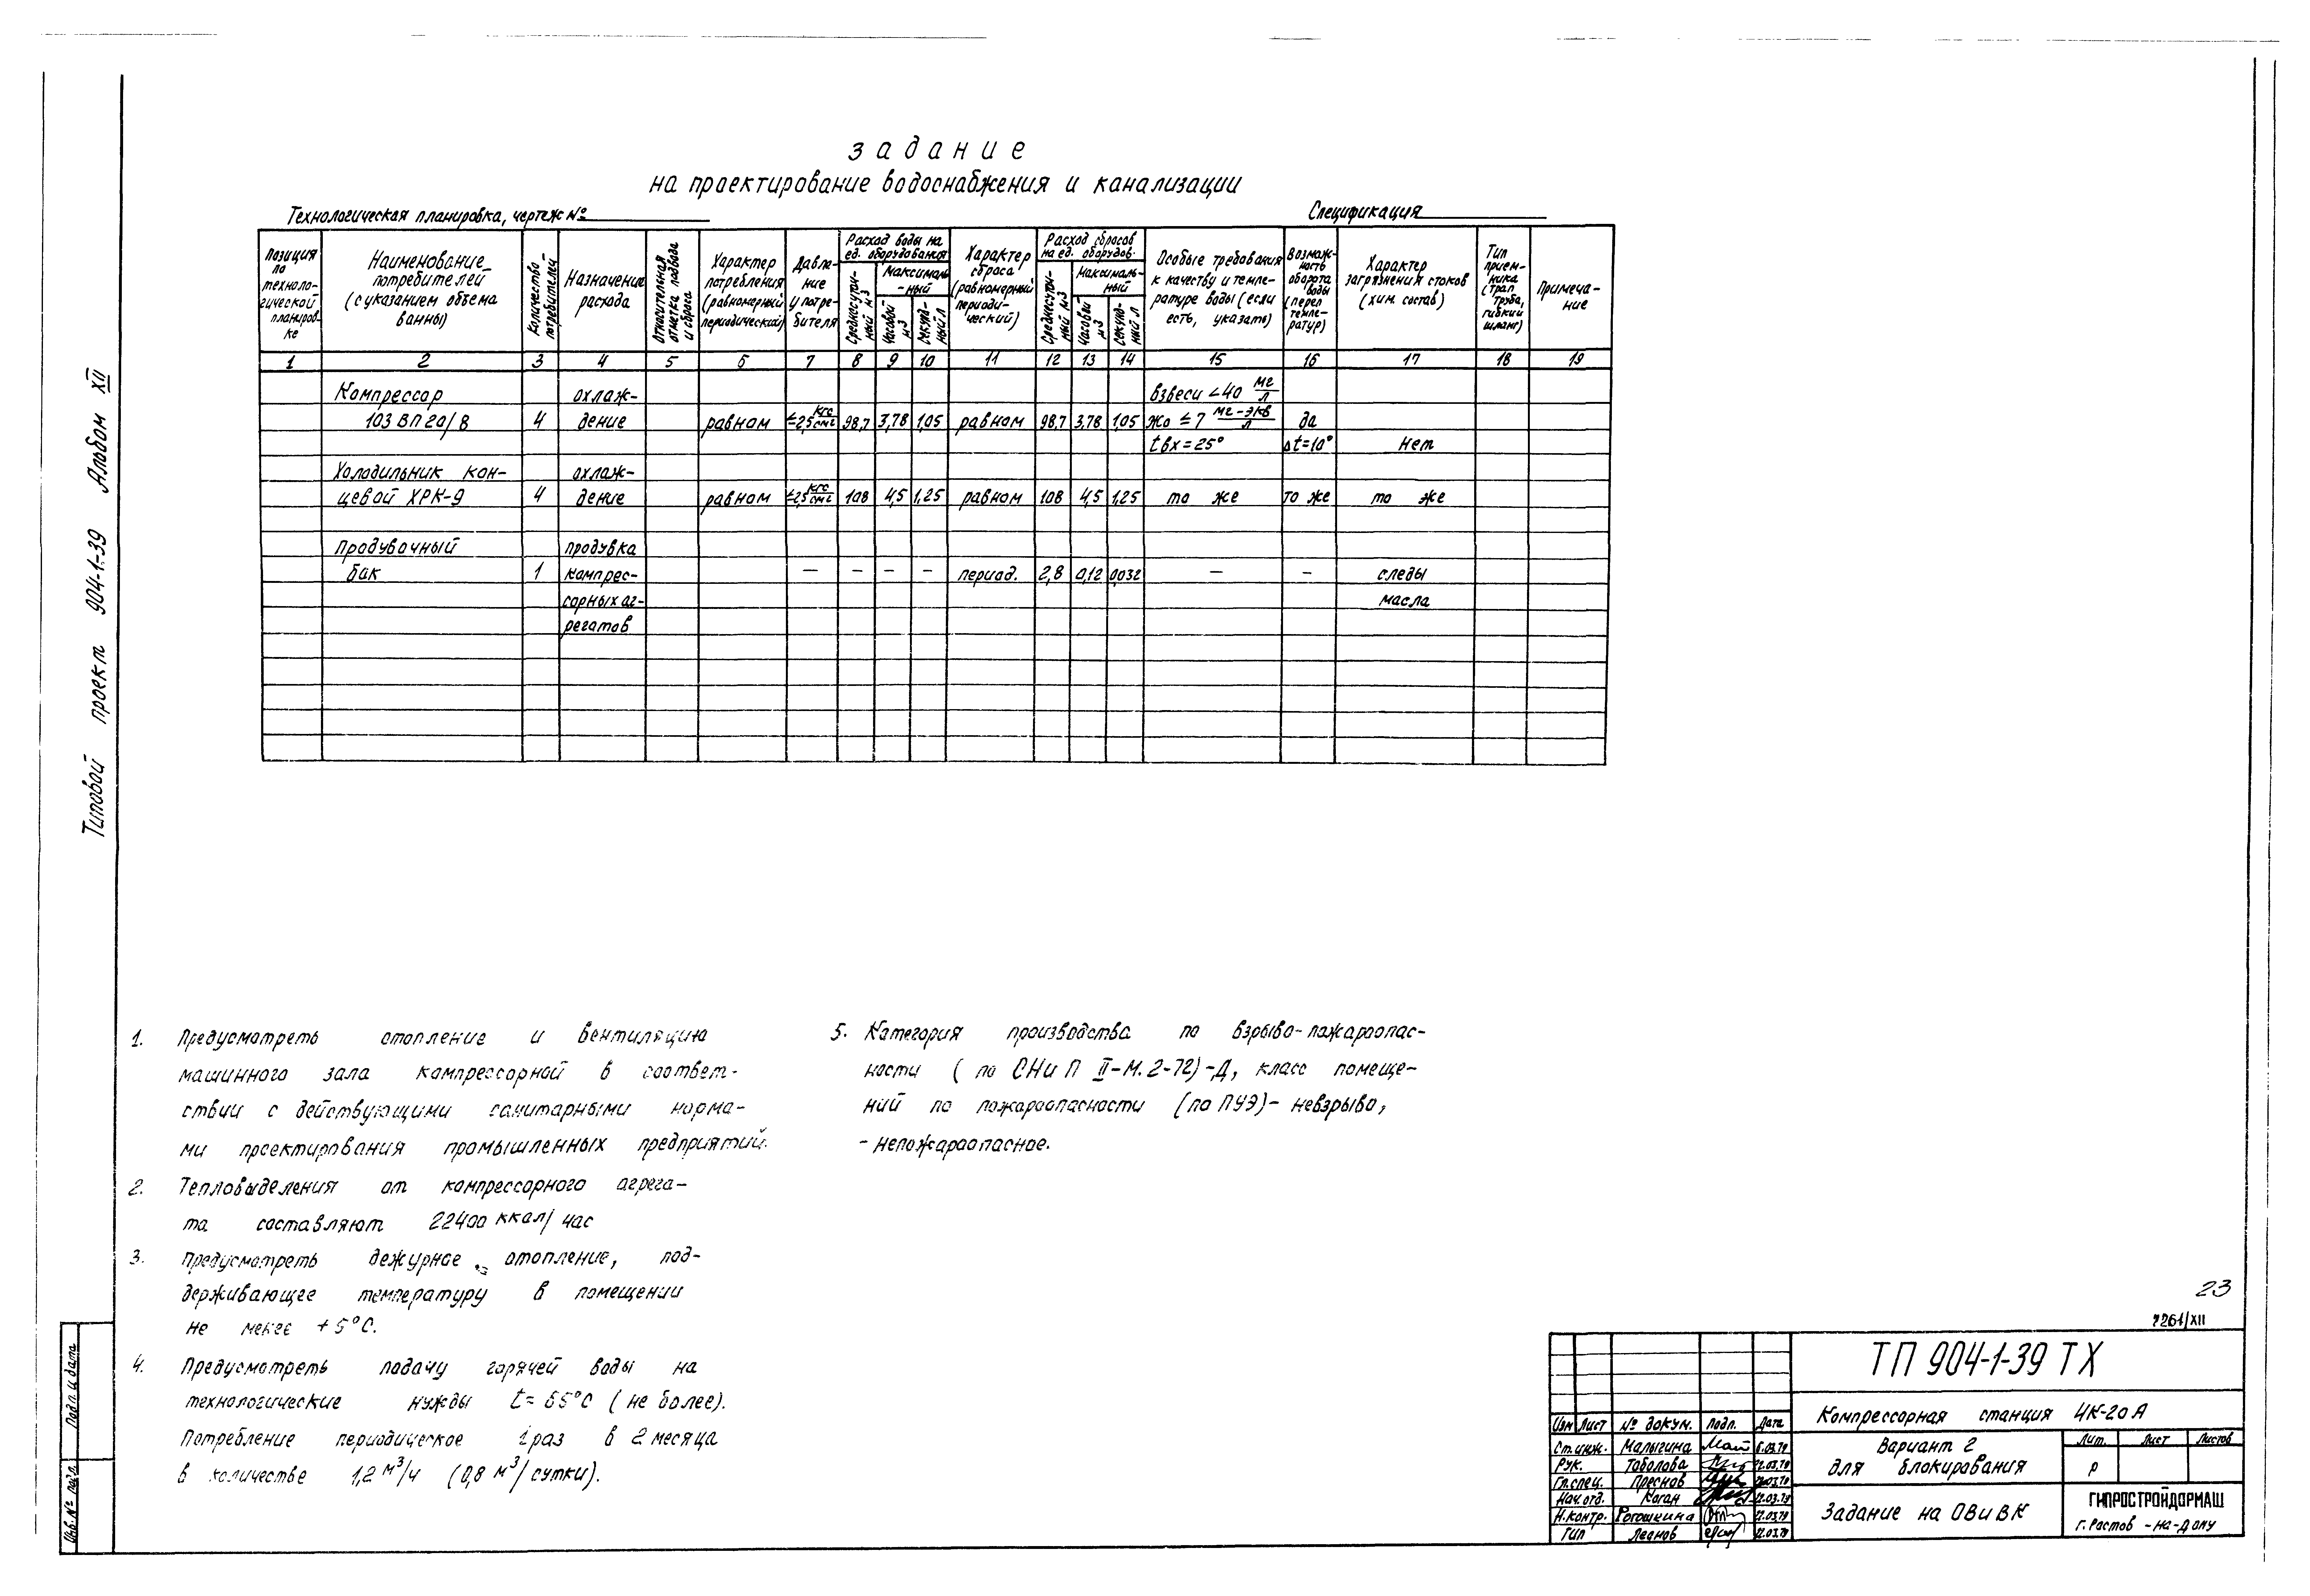 задание
на проектирование водоснабжения и канализации
Технологическая планировка, чертеж №
Спецификация
Позиция по техноло-гической планиров-ке
Наименование потребителей (с указанием объема ванны)
Количество потребителей
Назначение расхода
Относительная отметка подвода и сброса
Характер потребления (равномерный периодический)
Давле-ние у потре-бителя
Расход воды на ед. оборудования
Среднесуточ-ный м3
Максималь-ный
Часовой м3
Секунд-ный л
Характер сброса (равномерный периоди-ческий)
Расход сбросов на ед. оборудов.
Максималь-ный
Часовой м3
Секунд-ный л
Особые требования к качеству и темпе-ратуре воды (если есть, указать)
Возмож-ность оборота воды (переп темпе-ратур)
Характер загрязнения стоков (хим. состав)
Тип прием-ника (трап труба, гибкий шланг)
Примеча-ние
1 2 3 4 5 6 7 8 9 10 11 12 13 14 15 16 17 18 19
Компрессор охлаж- взвеси <40 мг/л
103 ВП 20/8 4 дение равном ≤2,5 кгс/см2 98,7 3,78 1,05 равном 98,7 3,78 1,05 жо ≤ 7 мг-экв/л да
tвх=25° Δt=10° нет
Холодильник кон- охлаж-
цевой ХРК-9 4 дение равном ≤2,5 кгс/см2 108 4,5 1,25 равном 108 4,5 1,25 то же то же то же
Продувочный продувка
бак 1 компрес- — — — — период. 2,8 0,12 0,032 — — следы
сорных аг- масла
регатов
1. Предусмотреть отопление и вентиляцию
машинного зала компрессорной в соответ-
ствии с действующими санитарными норма-
ми проектирования промышленных предприятий.
2. Тепловыделения от компрессорного агрега-
та составляют 22400 ккал/час
3. Предусмотреть дежурное отопление, под-
держивающее температуру в помещении
не менее +5°С.
4. Предусмотреть подачу горячей воды на
технологические нужды t= 65°С (не более).
Потребление периодическое 1 раз в 2 месяца
в количестве 1,2 м3/ч (0,8 м3/сутки).
5. Категория производства по взрыво-пожароопас-
ности (по СНиП II-М.2-72)-Д, класс помеще-
ний по пожароопасности (по ПУЭ)- невзрыво,
-непожароопасное.
Типовой проект 904-1-39 Альбом XII
Подп. и дата
Инв. № подл.
23
7261/XII
ТП 904-1-39 ТХ
Компрессорная станция 4К-20А
Изм Лист № докум. Подп. Дата
Ст. инж. Малыгина
Рук. Тоболова
Гл. спец. Преснов
Нач. отд. Коган
Н. контр. Рогошкина
ГИП Леонов
Вариант 2
для блокирования
Лит. Лист Листов
Р
Задание на ОВ и ВК
ГИПРОСТРОЙДОРМАШ
г. Ростов-на-Дону